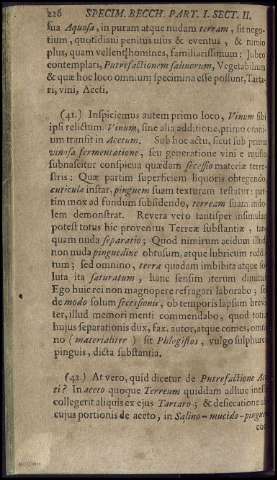 226 SPECIM. BECCH. PART. I. SECT. II.
sua Aquosa, in puram atque nudam terram, sit nego-
tium, quotidiani penitus usus & eventus, & nimio
plus, quam vellent homines, familiarissimum: Jubeo
contemplari, Putrefactionem salinorum, Vegetabilium
& quæ hoc loco omnium specimina esse possunt, Tarta-
ri, vini, Aceti.
(41.) Inspiciemus autem primo loco, Vinum sibi
ipsi relictum. Vinum, sine alia additione, primo omni-
um transit in Acetum. Sub hoc actu, sicut sub priore
vinosa fermentatione, seu generatione vini e musto
subnascitur conspicua quædam secessio materiæ terre-
stris; Quæ partim superficiem liquoris obtegendo
cuticulæ instar, pinguem suam texturam testatur: par-
tim mox ad fundum subsidendo, terream suam indo-
lem demonstrat. Revera vero tantisper insimulari
potest totus hic proventus Terreæ substantiæ, tan-
quam nuda separatio; Quod nimirum acidum illud
non nuda pinguedine obtusum, atque lubricum reddi-
tum; sed omnino, terra quadam imbibita atque so-
luta ita saturatum, hanc sensim iterum dimittat
Ego huic rei non magnopere refragari laborabo; sed
de modo solum secessionis, ob temporis lapsum brevi-
ter, illud memori menti commendabo, quod totius
hujus separationis dux, fax, autor, atque comes, omni-
no (materialiter) sit Phlogistos, vulgo sulphurea
pinguis, dicta substantia.
(42.) At vero, quid dicetur de Putrefactione Ace-
ti? In aceto quoque Terreum quiddam adhuc inesse
collegerit aliquis ex ejus Tartaro; & desiccatione ali-
cujus portionis de aceto, in Salino-mucido-pingue